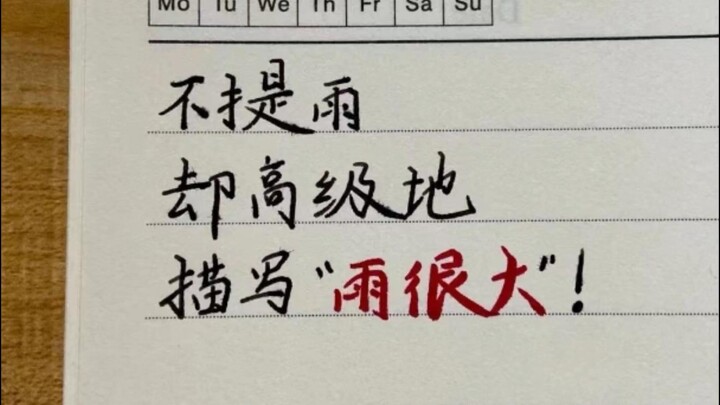 Mo Tu We Th Fr Sa Su
不提雨
却高级地
描写"雨很大"!